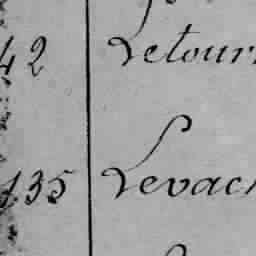 42 Letour
135 Levac